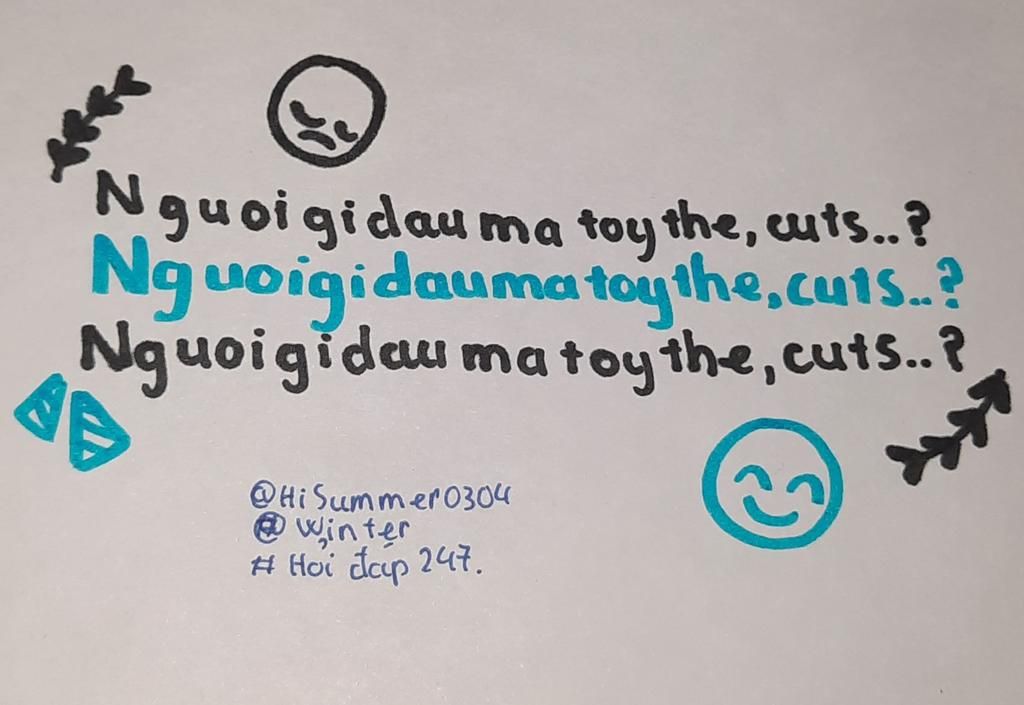 Nguoigidau ma toy the, cuts..?
Nguoigidaumatoythe,cuts..?
Nguoigidau ma toy the, cuts..?
@HiSummer0304
@ Winter
# Hỏi đáp 247.